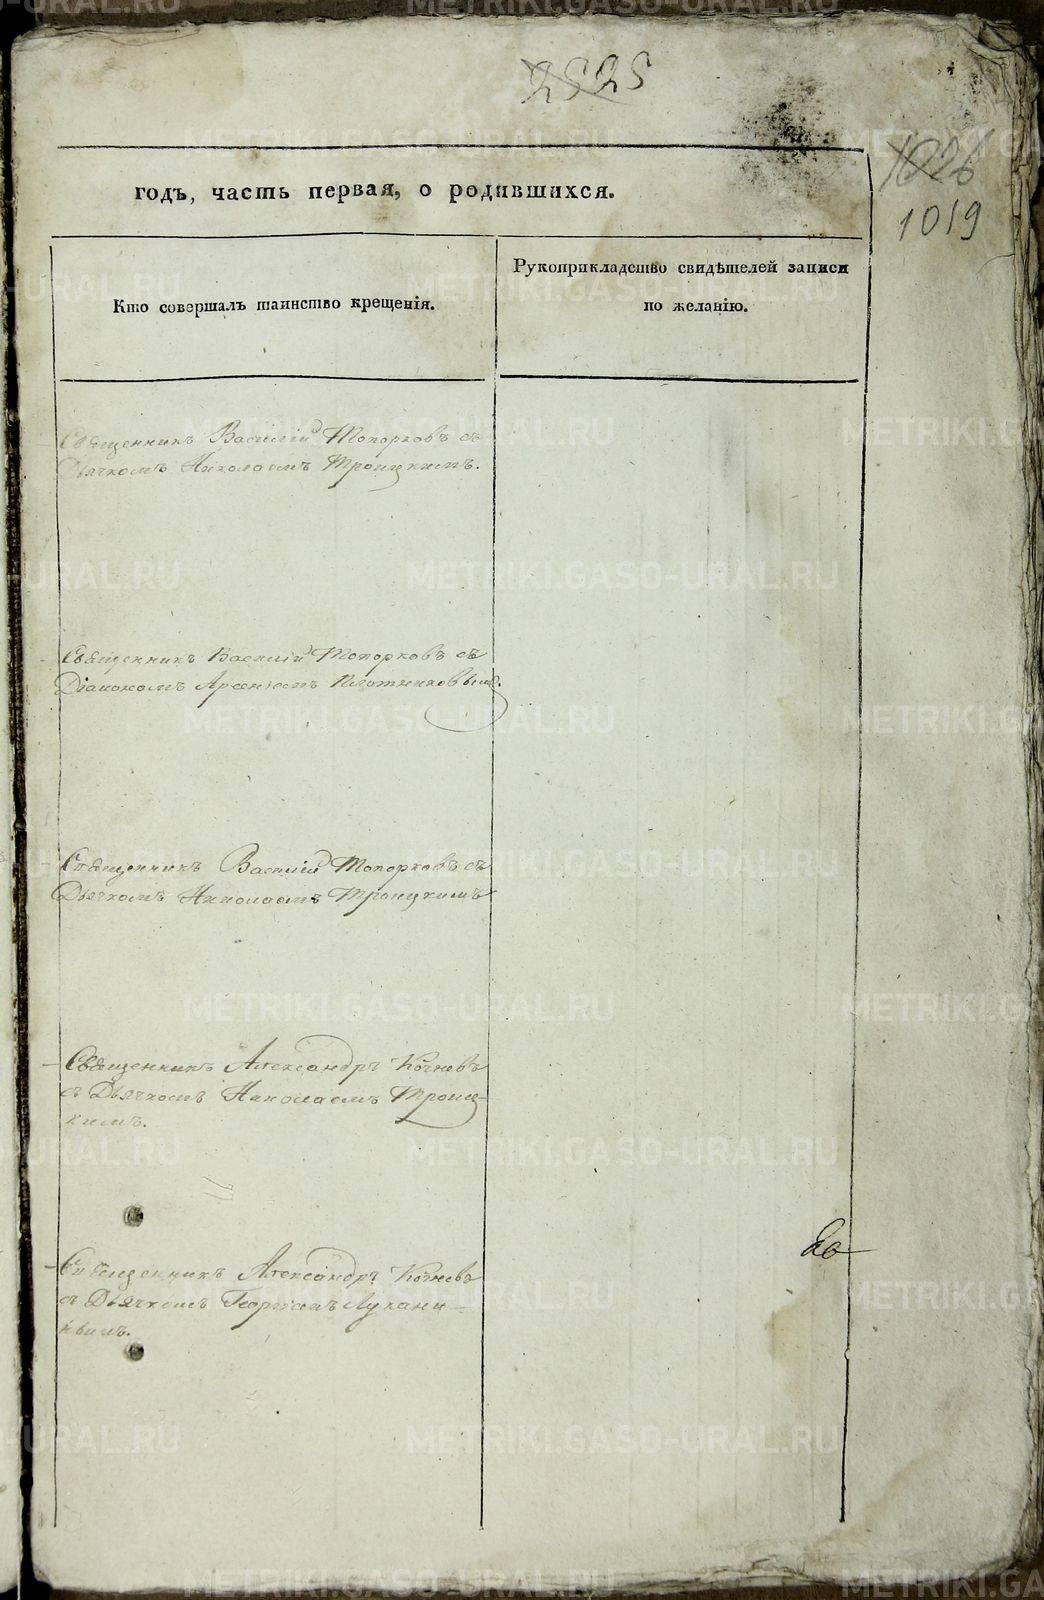 2525
1026
1019
годъ, часть первая, о родившихся.
Кто совершалъ таинство крещенія.
Рукоприкладство свидѣтелей записи
по желанію.
Священникъ Василій Топорковъ съ
Дьячкомъ Николаемъ Троицкимъ.
Священникъ Василій Топорковъ съ
Діакономъ Арсеніемъ Плотниковымъ.
Священникъ Василій Топорковъ съ
Дьячкомъ Николаемъ Троицкимъ
Священникъ Александръ Кочневъ
съ Дьячкомъ Николаемъ Троиц-
кимъ.
Священникъ Александръ Кочневъ
съ Дьячкомъ Георгіемъ
METRIKI.GASO-URAL.RU